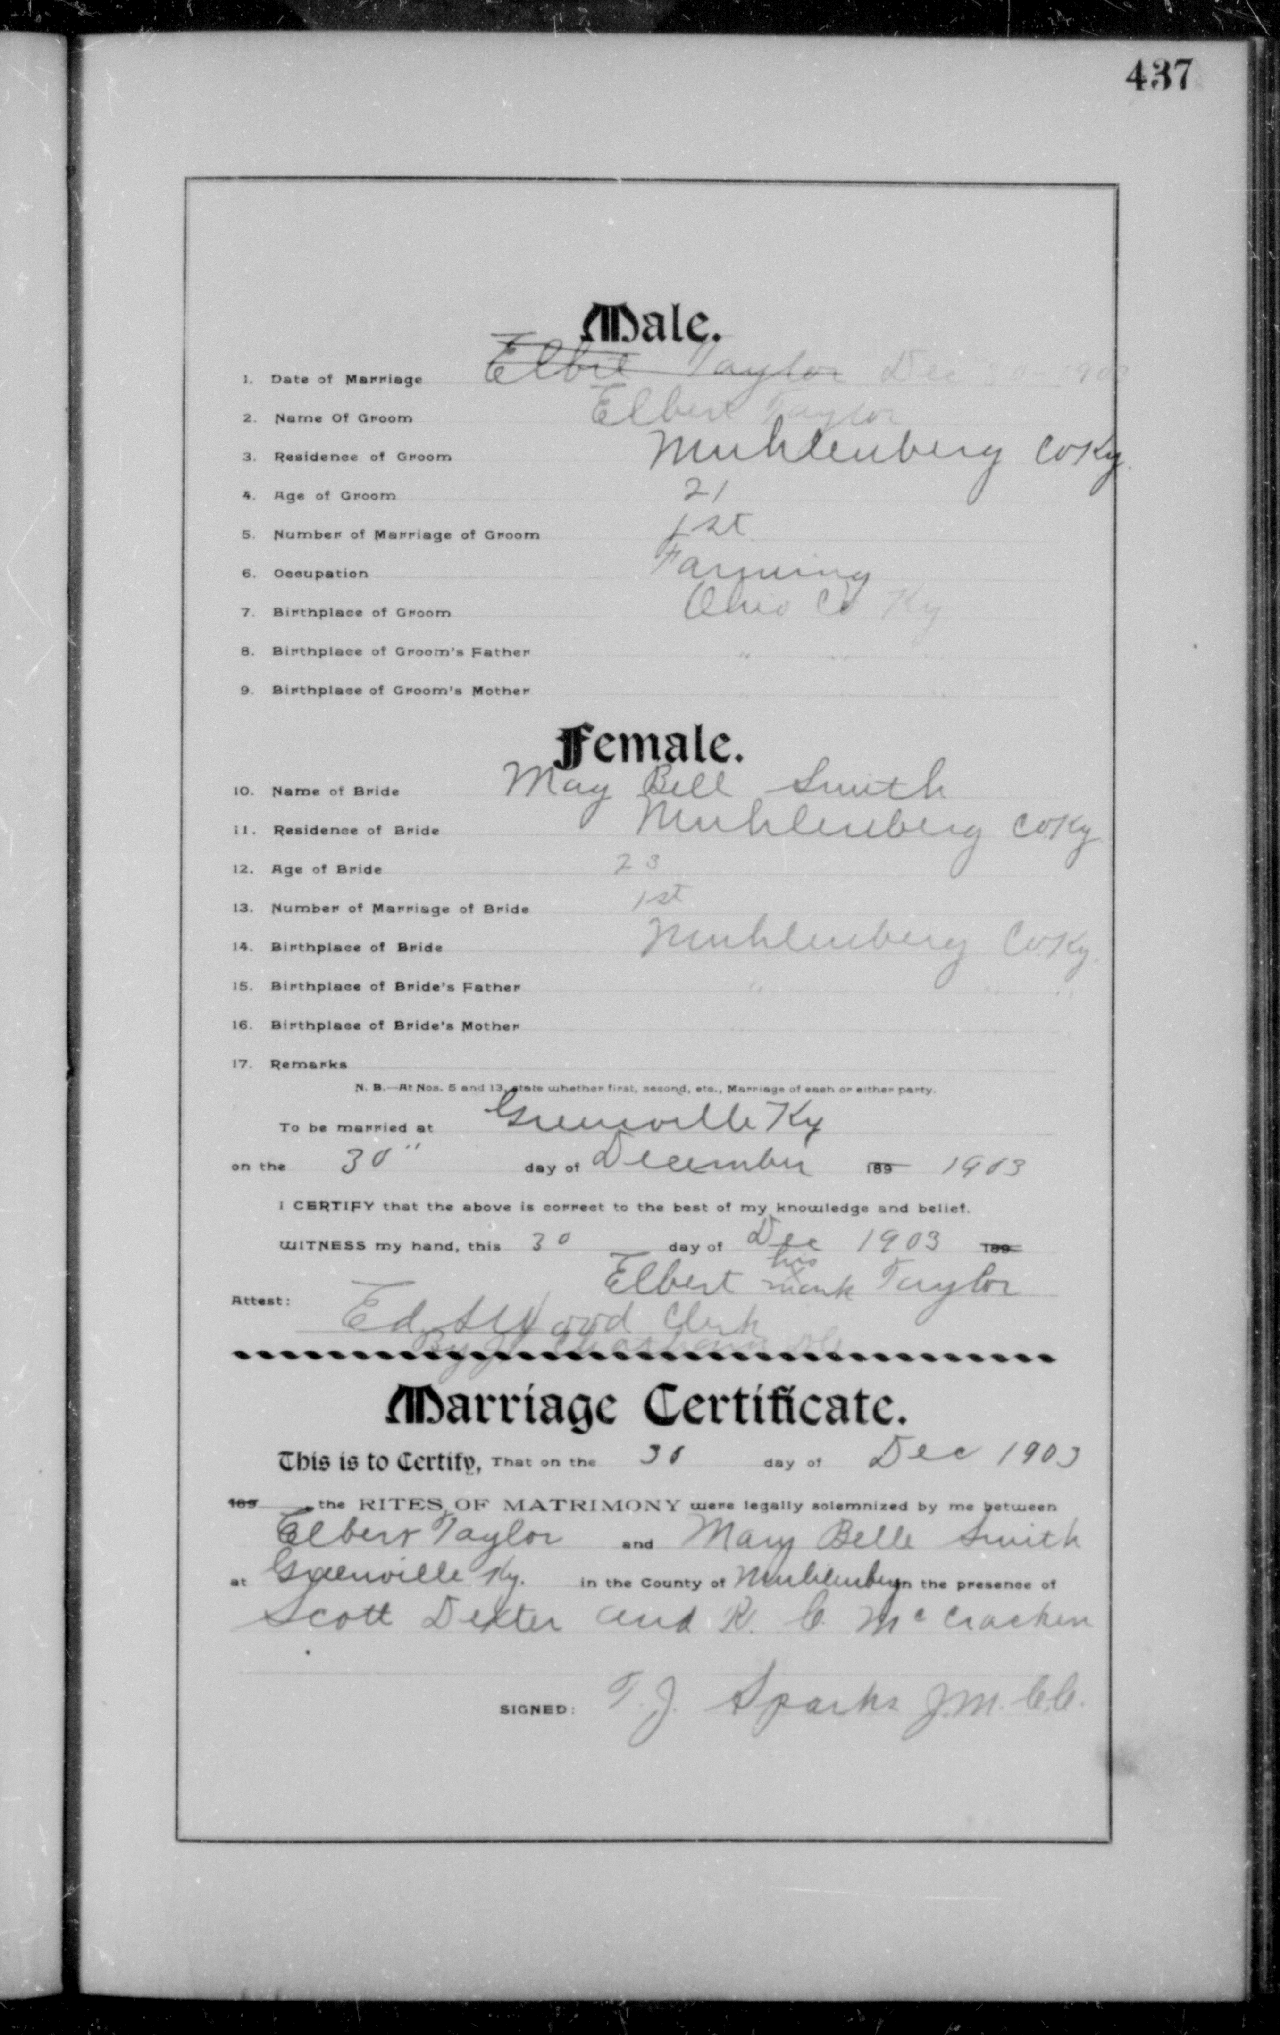 437
Male.
1. Date of Marriage Elbre Taylor Dec 30 1903
2. Name Of Groom Elbert Taylor
3. Residence of Groom Muhlenberg Co Ky.
4. Age of Groom 21
5. Number of Marriage of Groom 1st
6. Occupation Farming
7. Birthplace of Groom Ohio Co Ky
8. Birthplace of Groom's Father "
9. Birthplace of Groom's Mother
Female.
10. Name of Bride May Bell Smith
11. Residence of Bride Muhlenberg Co Ky
12. Age of Bride 23
13. Number of Marriage of Bride 1st
14. Birthplace of Bride Muhlenberg Co Ky.
15. Birthplace of Bride's Father " "
16. Birthplace of Bride's Mother
17. Remarks
N. B.—At Nos. 5 and 13, state whether first, second, etc., Marriage of each or either party.
To be married at Greenville Ky
on the 30" day of December 189 1903
I CERTIFY that the above is correct to the best of my knowledge and belief.
WITNESS my hand, this 30 day of Dec 1903 189
his
Elbert x Taylor
mark
Attest: Ed S Wood Clerk
By
Marriage Certificate.
This is to Certify, That on the 30 day of Dec 1903
189 , the RITES OF MATRIMONY were legally solemnized by me between
Elbert Taylor and Mary Belle Smith
at Greenville Ky. in the County of Muhlenberg in the presence of
Scott Dexter and R. C. McCracken
SIGNED: T. J. Sparks J.M.C.C.